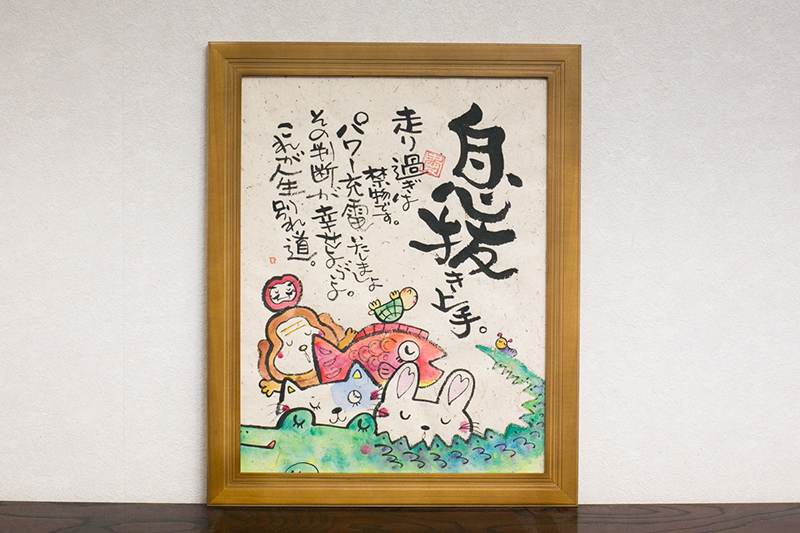 息抜き上手。
走り過ぎは
禁物です。
パワー充電いたしましょ。
その判断が幸せよぶいよ
これが人生別れ道。